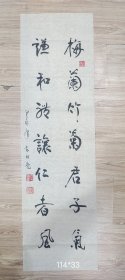 梅菊竹菊君子氣
謙和禮讓仁者風
114*33